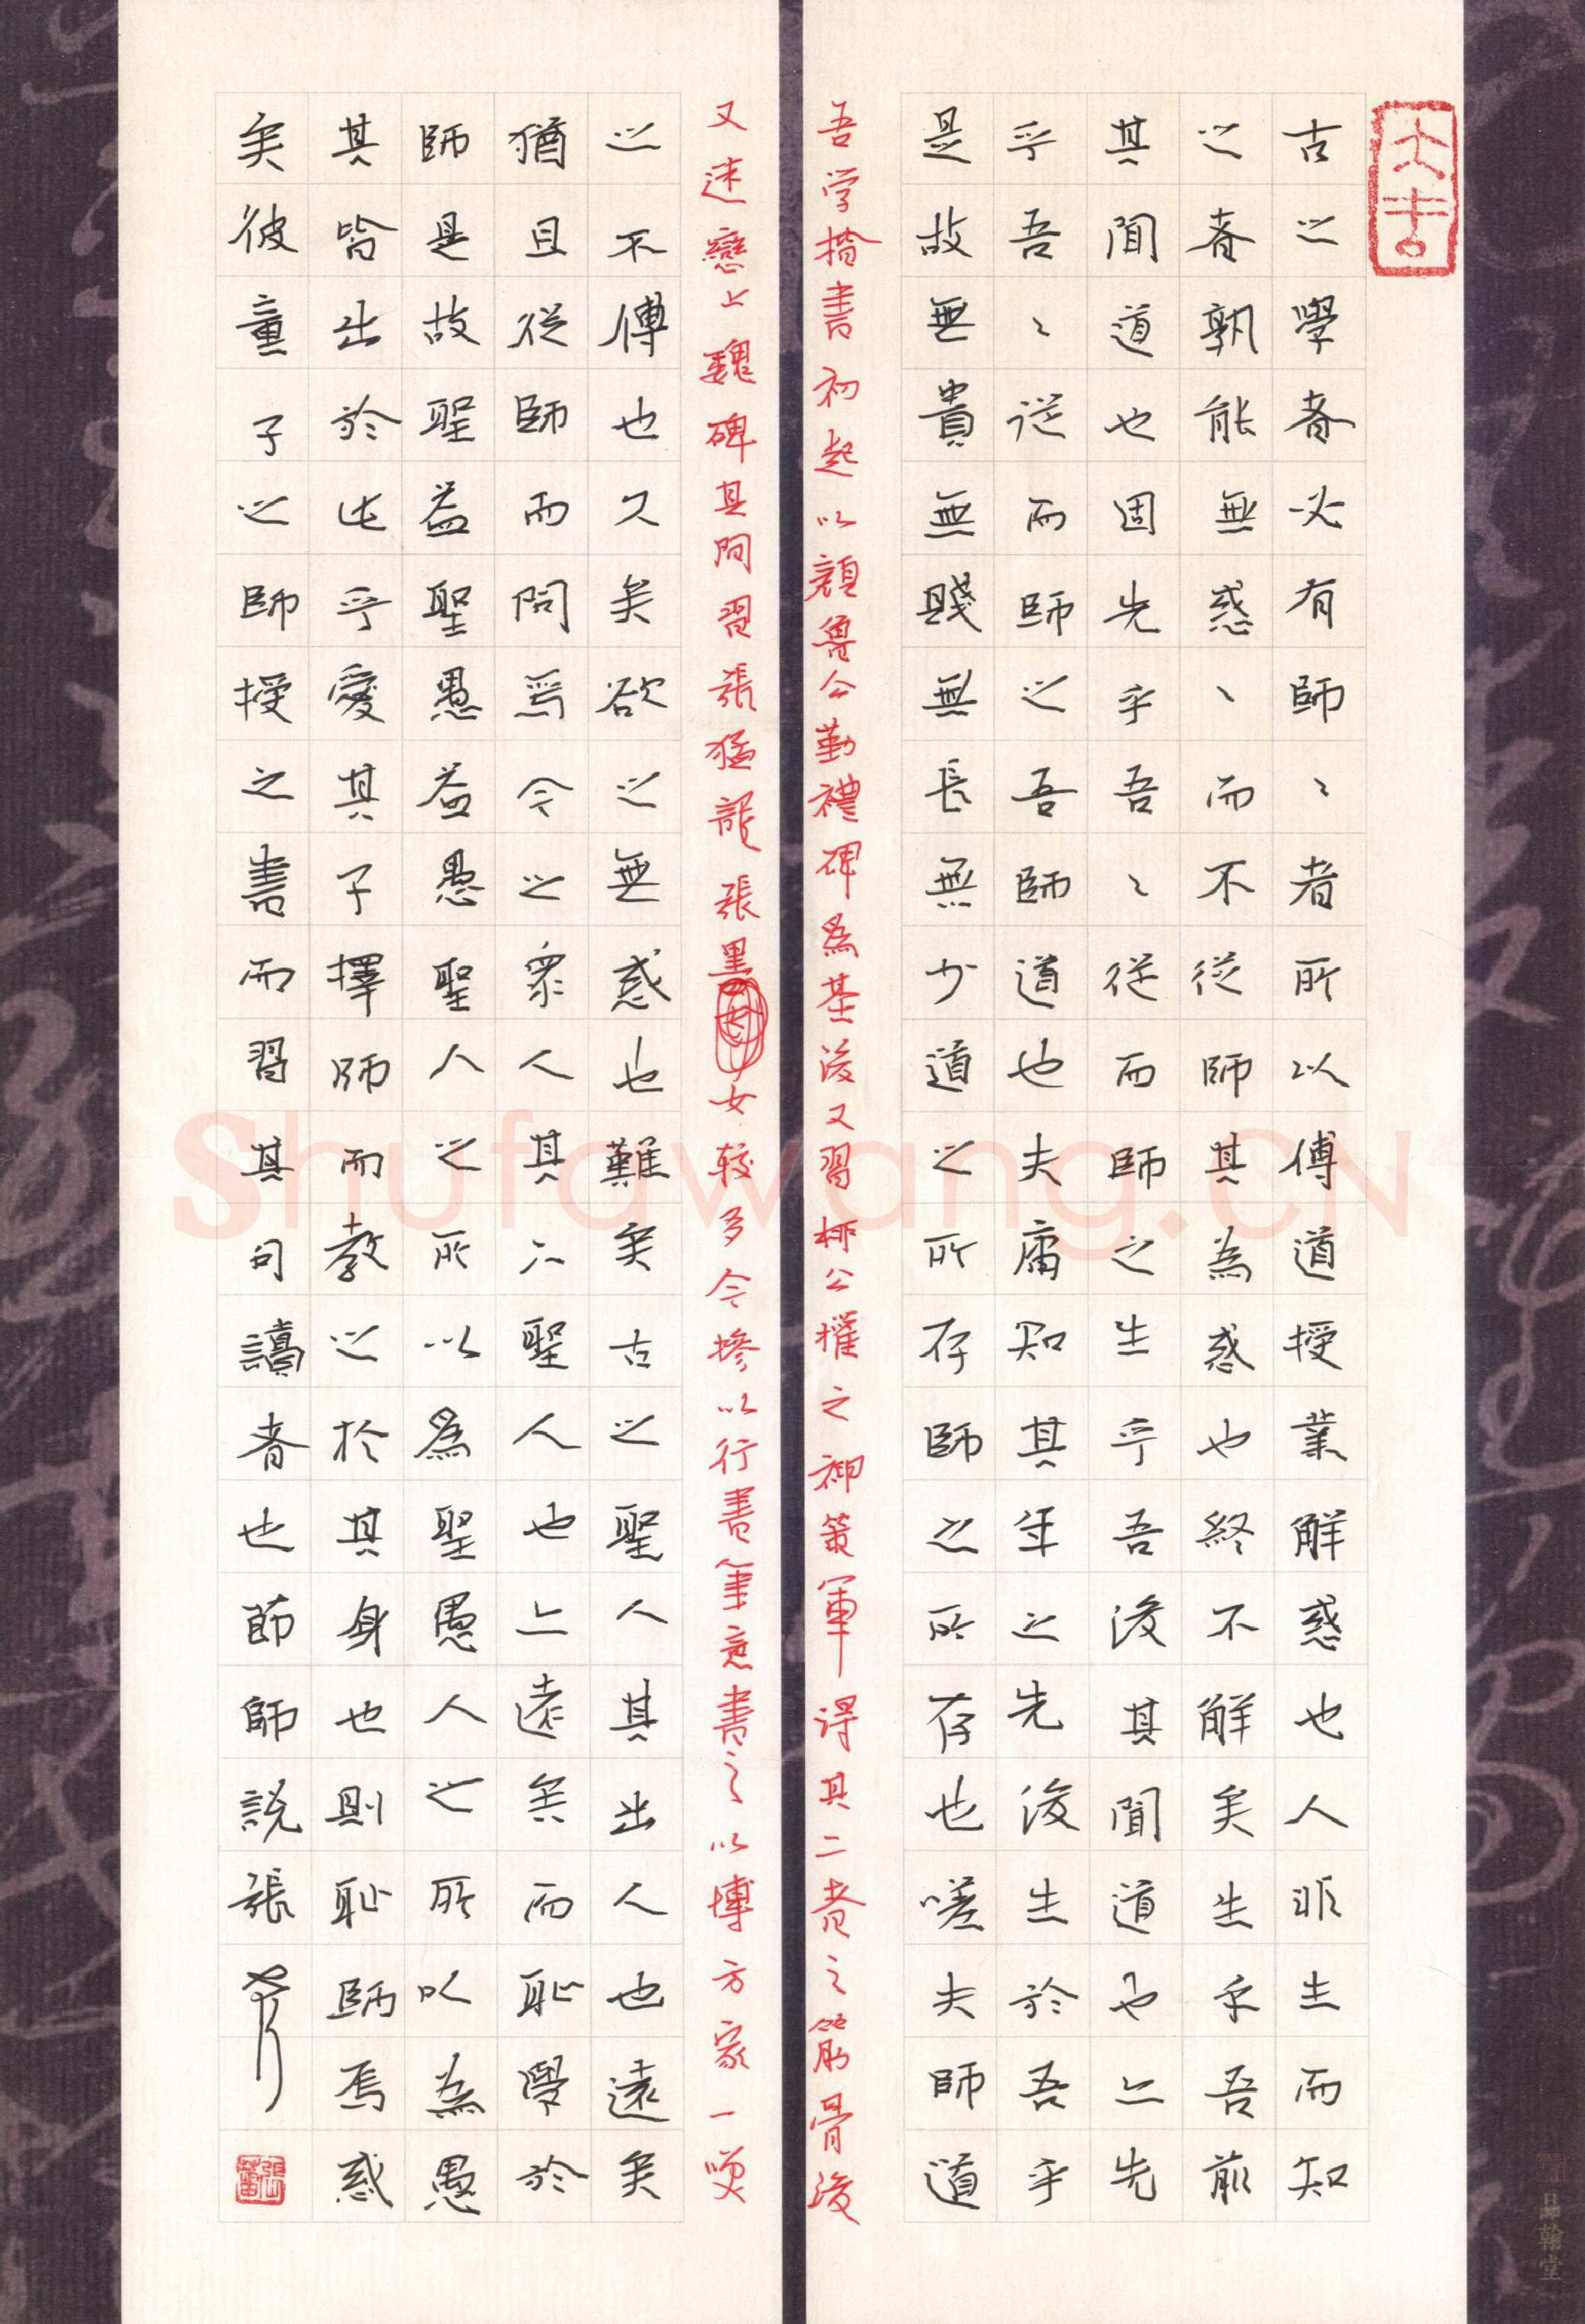 大吉
古之學者必有師〻者所以傳道授業解惑也人非生而知
之者孰能無惑〻而不從師其為惑也終不解矣生乎吾前
其聞道也固先乎吾〻從而師之生乎吾後其聞道也亦先
乎吾〻從而師之吾師道也夫庸知其年之先後生於吾乎
是故無貴無賤無長無少道之所存師之所存也嗟夫師道
吾学楷書初起以顏魯公勤禮碑為基後又習柳公權之神策軍得其二者之筋骨後
又迷戀上魏碑其間習張猛龍張黑女較多今摻以行書筆意書之以博方家一咲
之不傳也久矣欲之無惑也難矣古之聖人其出人也遠矣
猶且從師而問焉今之衆人其亦聖人也亦遠矣而恥學於
師是故聖益聖愚益愚聖人之所以為聖愚人之所以為愚
其皆出於此乎愛其子擇師而教之於其身也則恥師焉惑
矣彼童子之師授之書而習其句讀者也節師說張
Shufawang.CN
品翰堂